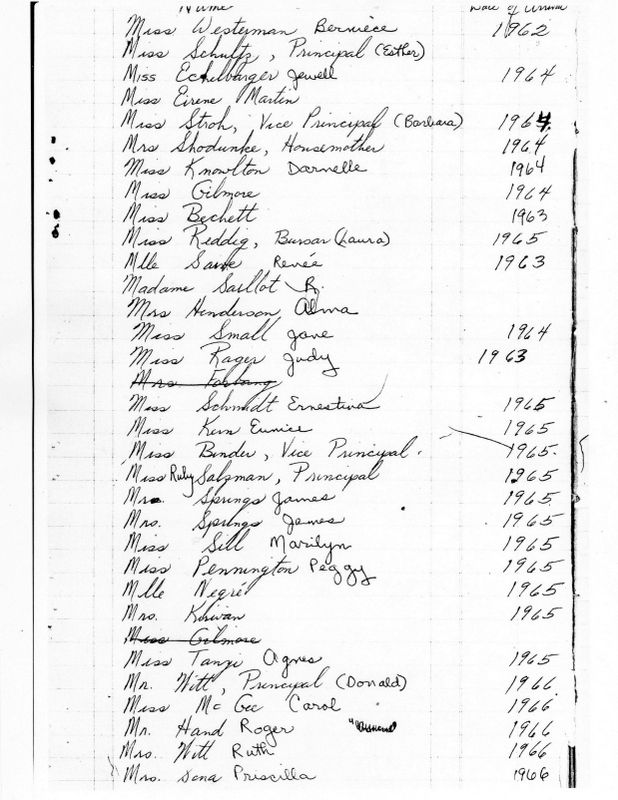 Name Date of Arrival
Miss Westerman Berniece 1962
Miss Schultz, Principal (Esther)
Miss Echelbarger Jewell 1964
Miss Eirene Martin
Miss Stroh, Vice Principal (Barbara) 1964
Mrs Shodunke, Housemother 1964
Miss Knowlton Darnelle 1964
Miss Gilmore 1964
Miss Beckett 1963
Miss Reddig, Bursar (Laura) 1965
Mlle Renée 1963
Madame Saillot R.
Mrs Henderson Alma
Miss Small Jane 1964
Miss Rager Judy 1963
Mrs
Miss Schmidt Ernestina 1965
Miss Kern Eunice 1965
Miss Binder, Vice Principal. 1965.
Miss Ruby Salzman, Principal 1965
Mr. Springs James 1965
Mrs. Springs James 1965
Miss Sill Marilyn 1965
Miss Pennington Peggy 1965
Mlle Negré 1965
Mrs. Kirwan 1965
Miss Gilmore
Miss Tanzi Agnes 1965
Mr. Witt, Principal (Donald) 1966
Miss McGee Carol 1966
Mr. Hand Roger 1966
Mrs. Witt Ruth 1966
Mrs. Sena Priscilla 1966